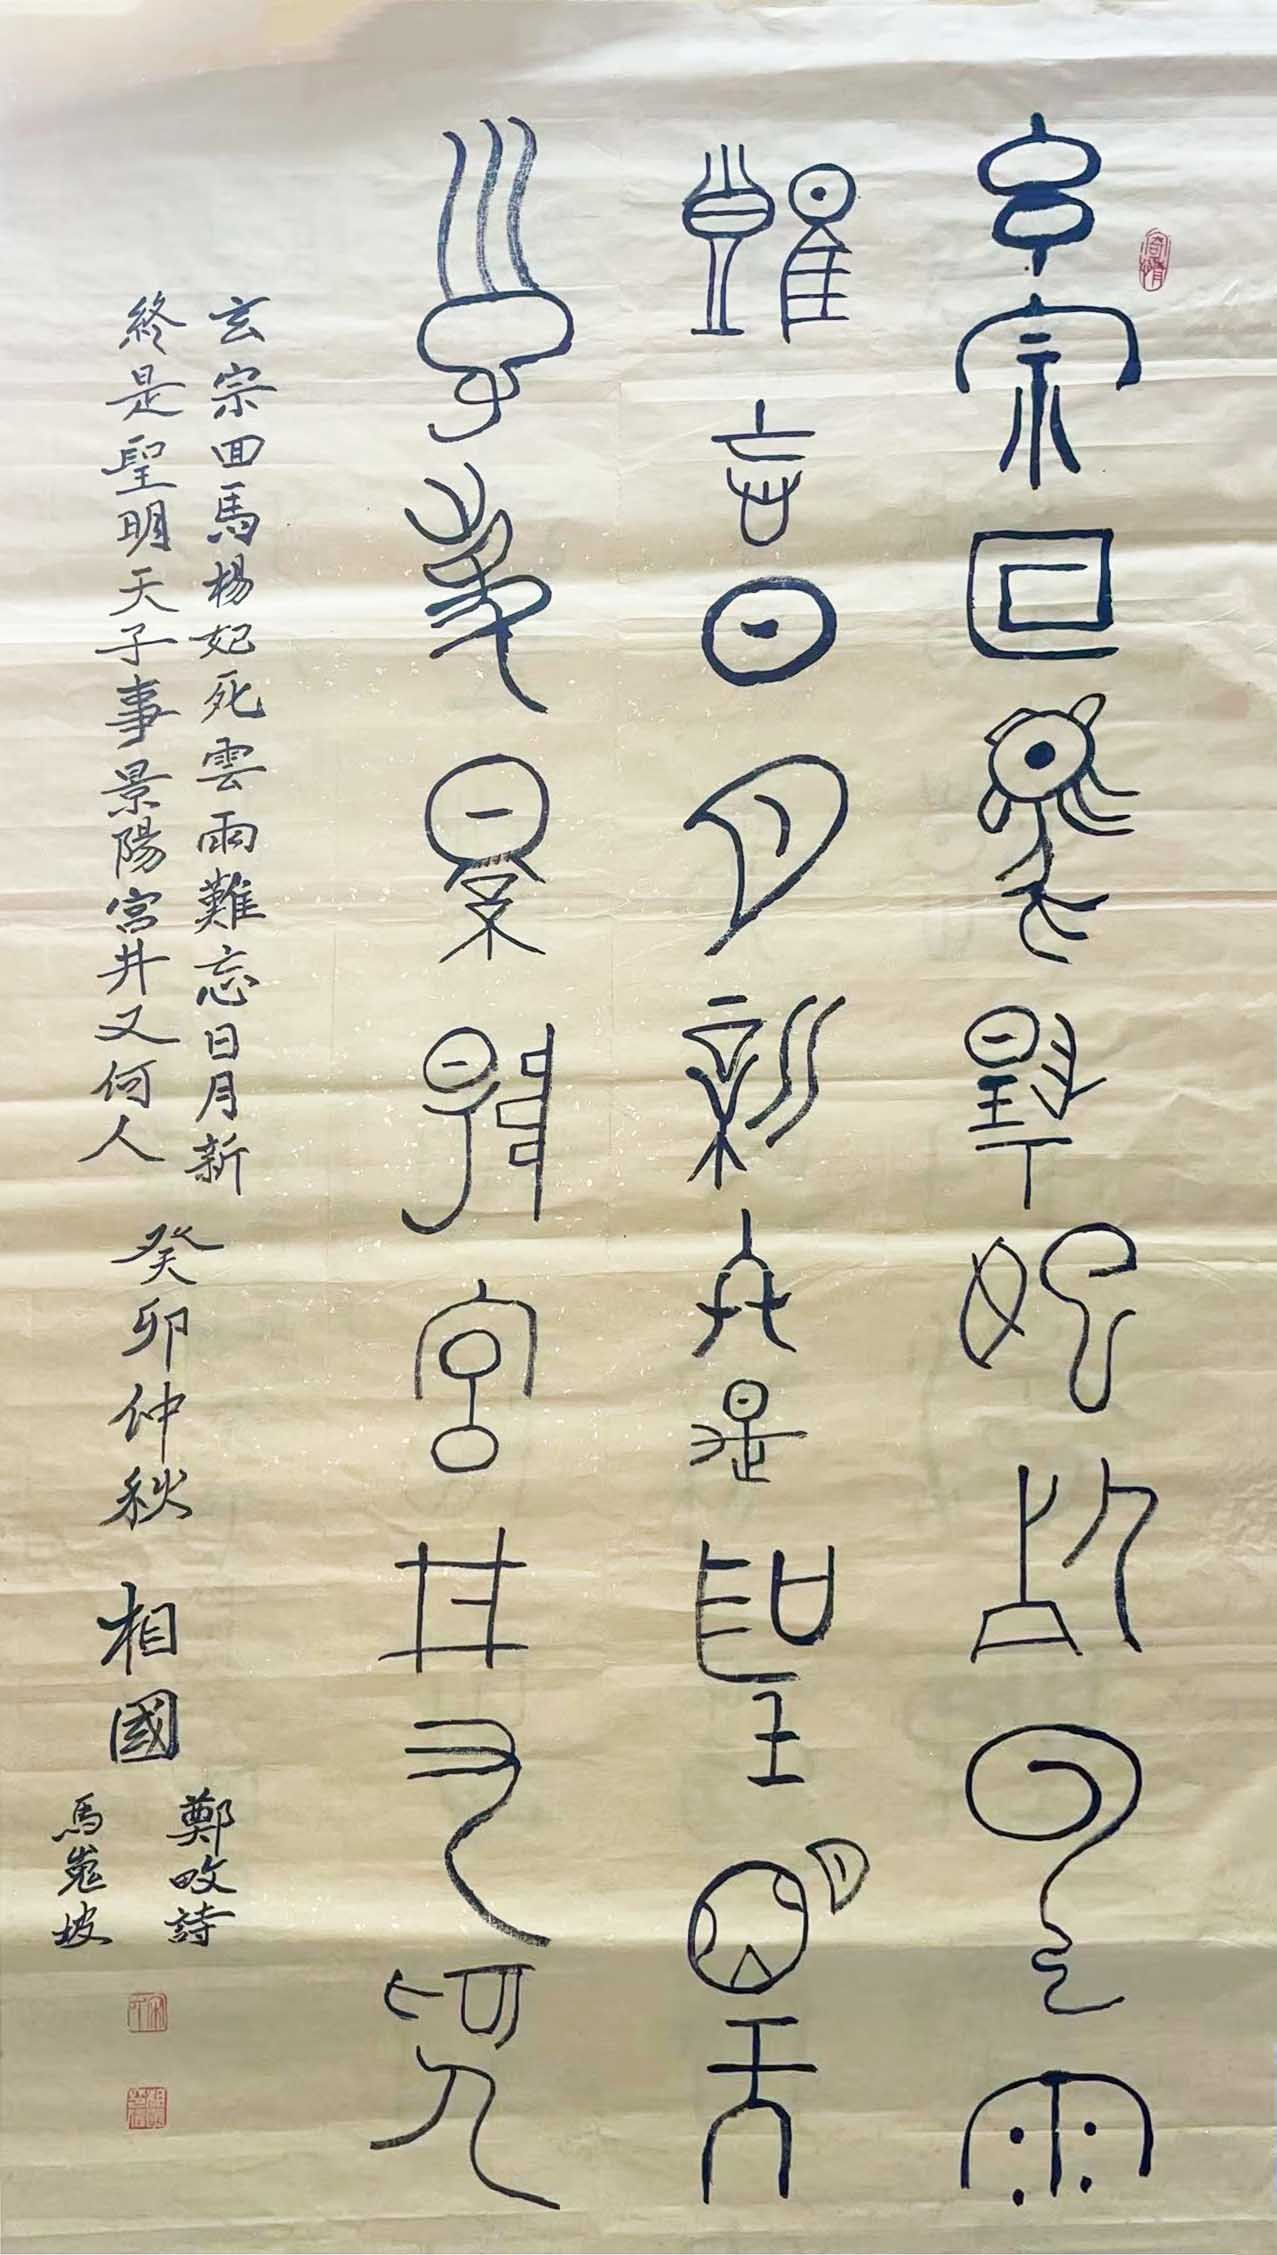 玄宗回馬楊妃死雲雨
難忘日月新終是聖明天
子事景陽宮井又何人
玄宗回馬楊妃死雲雨難忘日月新
終是聖明天子事景陽宮井又何人
癸卯仲秋
相國
鄭畋詩
馬嵬坡